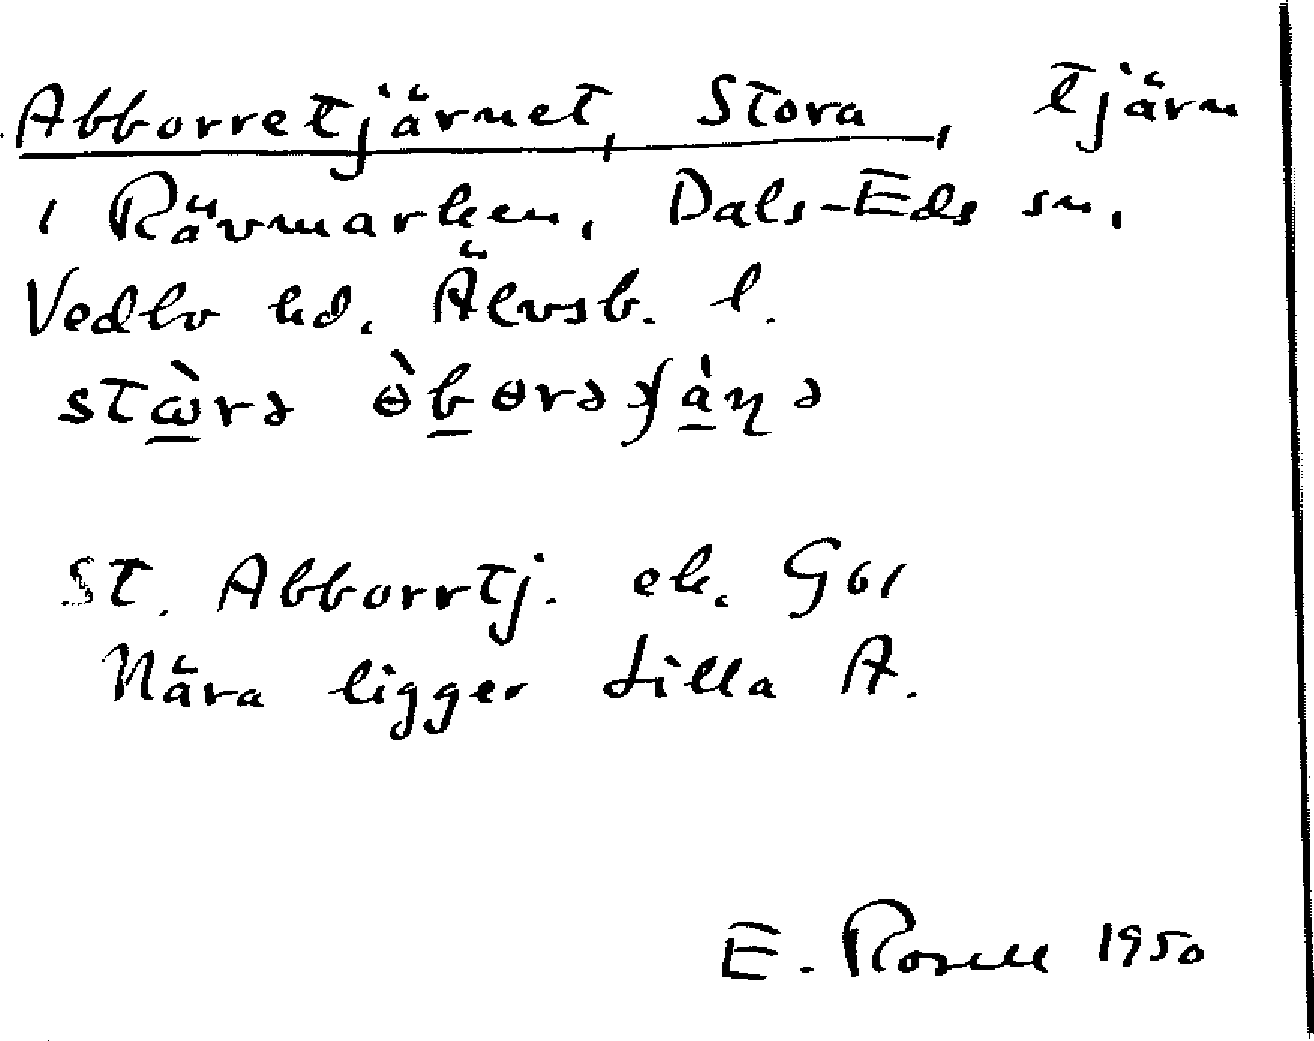 Abborretjärnet, Stora, tjärn
i Rävmarken, Dals-Eds sn,
Vedbo hd. Älvsb. l.
St. Abborrtj. ek.
Nära ligger Lilla A.
E. Rosell 1950